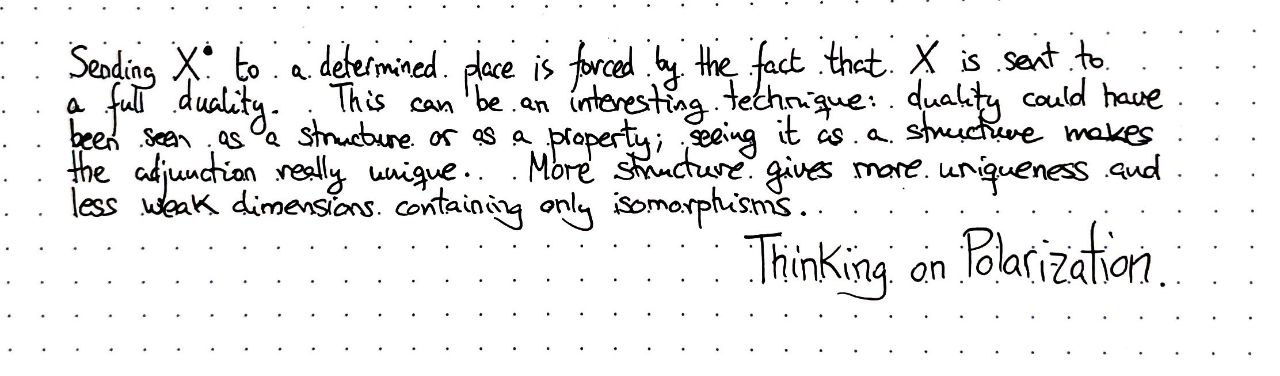 Sending X• to a determined place is forced by the fact that X is sent to
a full duality. This can be an interesting technique: duality could have
been seen as a structure or as a property; seeing it as a structure makes
the adjunction really unique. More structure gives more uniqueness and
less weak dimensions containing only isomorphisms.
Thinking on Polarization.